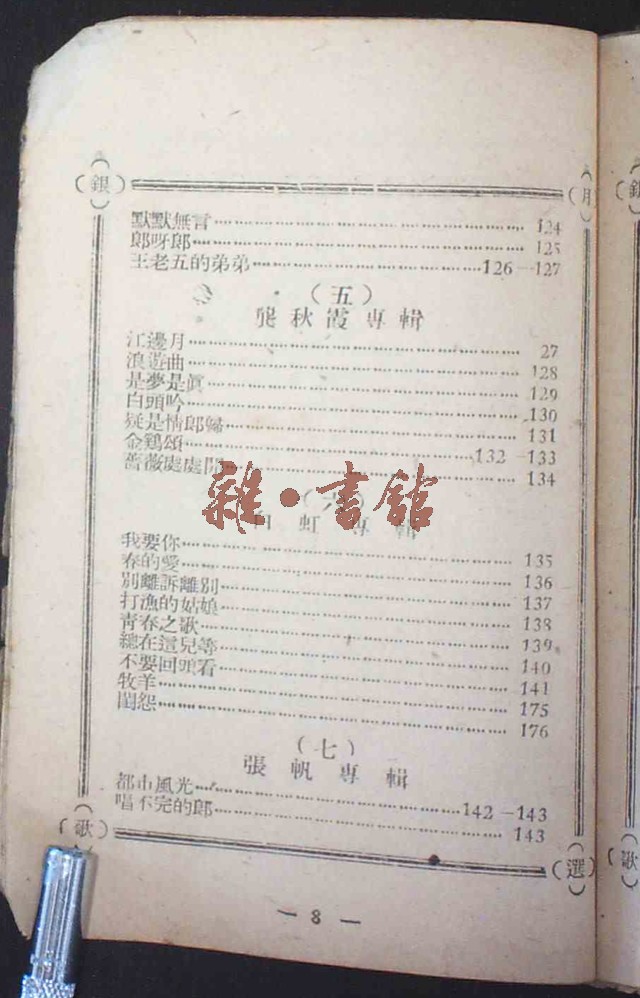 (銀)
(月)
(銀)
默默無言 124
郎呀郎 125
王老五的弟弟 126—127
(五)
龔秋霞專輯
江邊月 27
浪遊曲 128
是夢是眞 129
白頭吟 130
疑是情郎歸 131
金鷄頌 132—133
薔薇處處開 134
雜·書館
(六)
白虹專輯
我要你 135
春的愛 136
別離訴離別 137
打漁的姑娘 138
靑春之歌 139
總在這兒等 140
不要回頭看 141
牧羊 175
閨怨 176
(七)
張帆專輯
都市風光 142—143
唱不完的郎 143
(歌)
(選)
(歌)
— 8 —